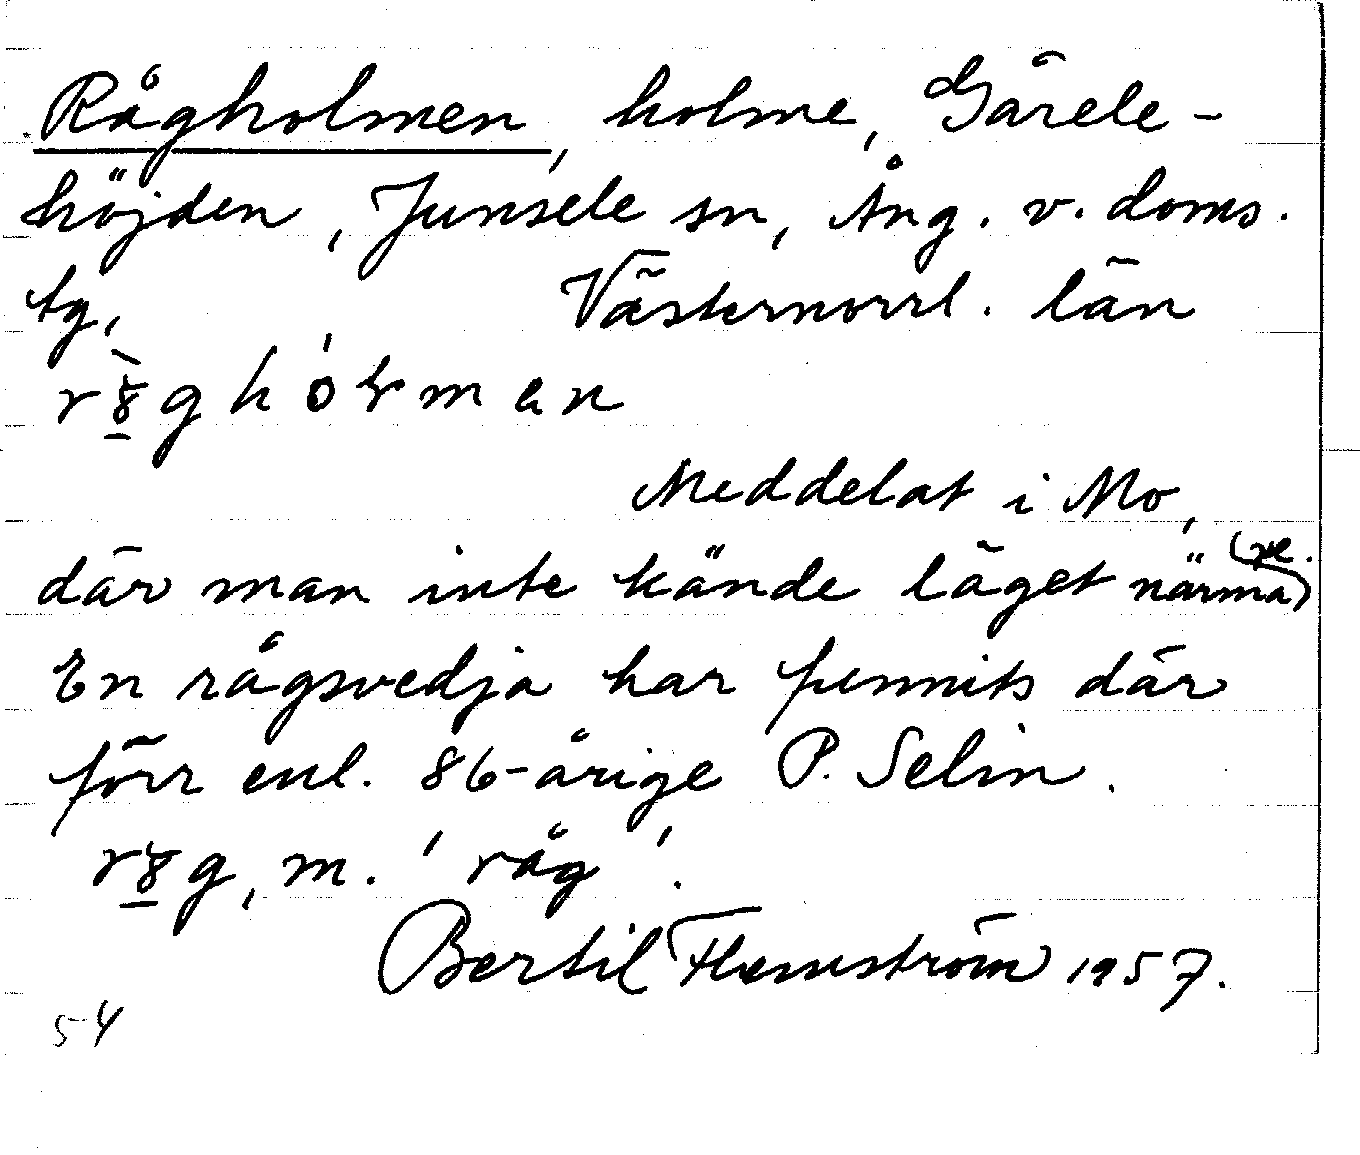 Rågholmen, holme, Gårele-
höjden, Junsele sn, Ång. v. doms.
tg, Västernorrl. län
Meddelat i Mo,
där man inte kände läget närmare.
En rågsvedja har funnits där
förr enl. 86-årige P. Selin.
m. 'råg'.
Bertil Flemström 1957.
54